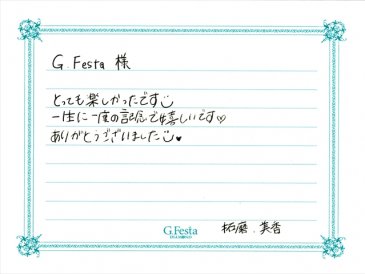 G.Festa 様
とっても楽しかったです
一生に一度の記念で嬉しいです♡
ありがとうございました♥
G.Festa
拓磨 美香